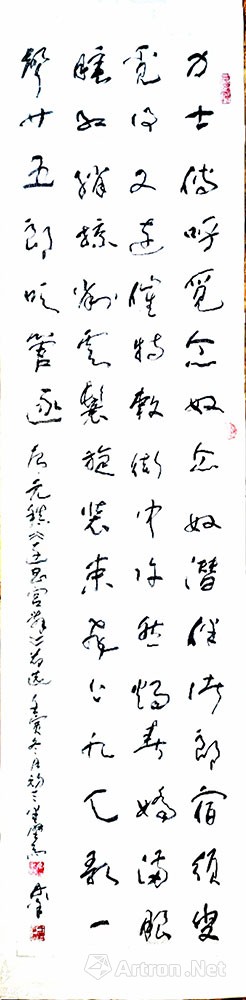 力士傳呼覓念奴念奴潛伴諸郎宿須臾
覓得又連催特敕街中許然燭春嬌滿眼
睡紅綃掠削雲鬟旋裝束飛上九天歌一
聲廿五郎吹管逐 唐元稹 宮辭 壬寅冬月初三
Artron.Net